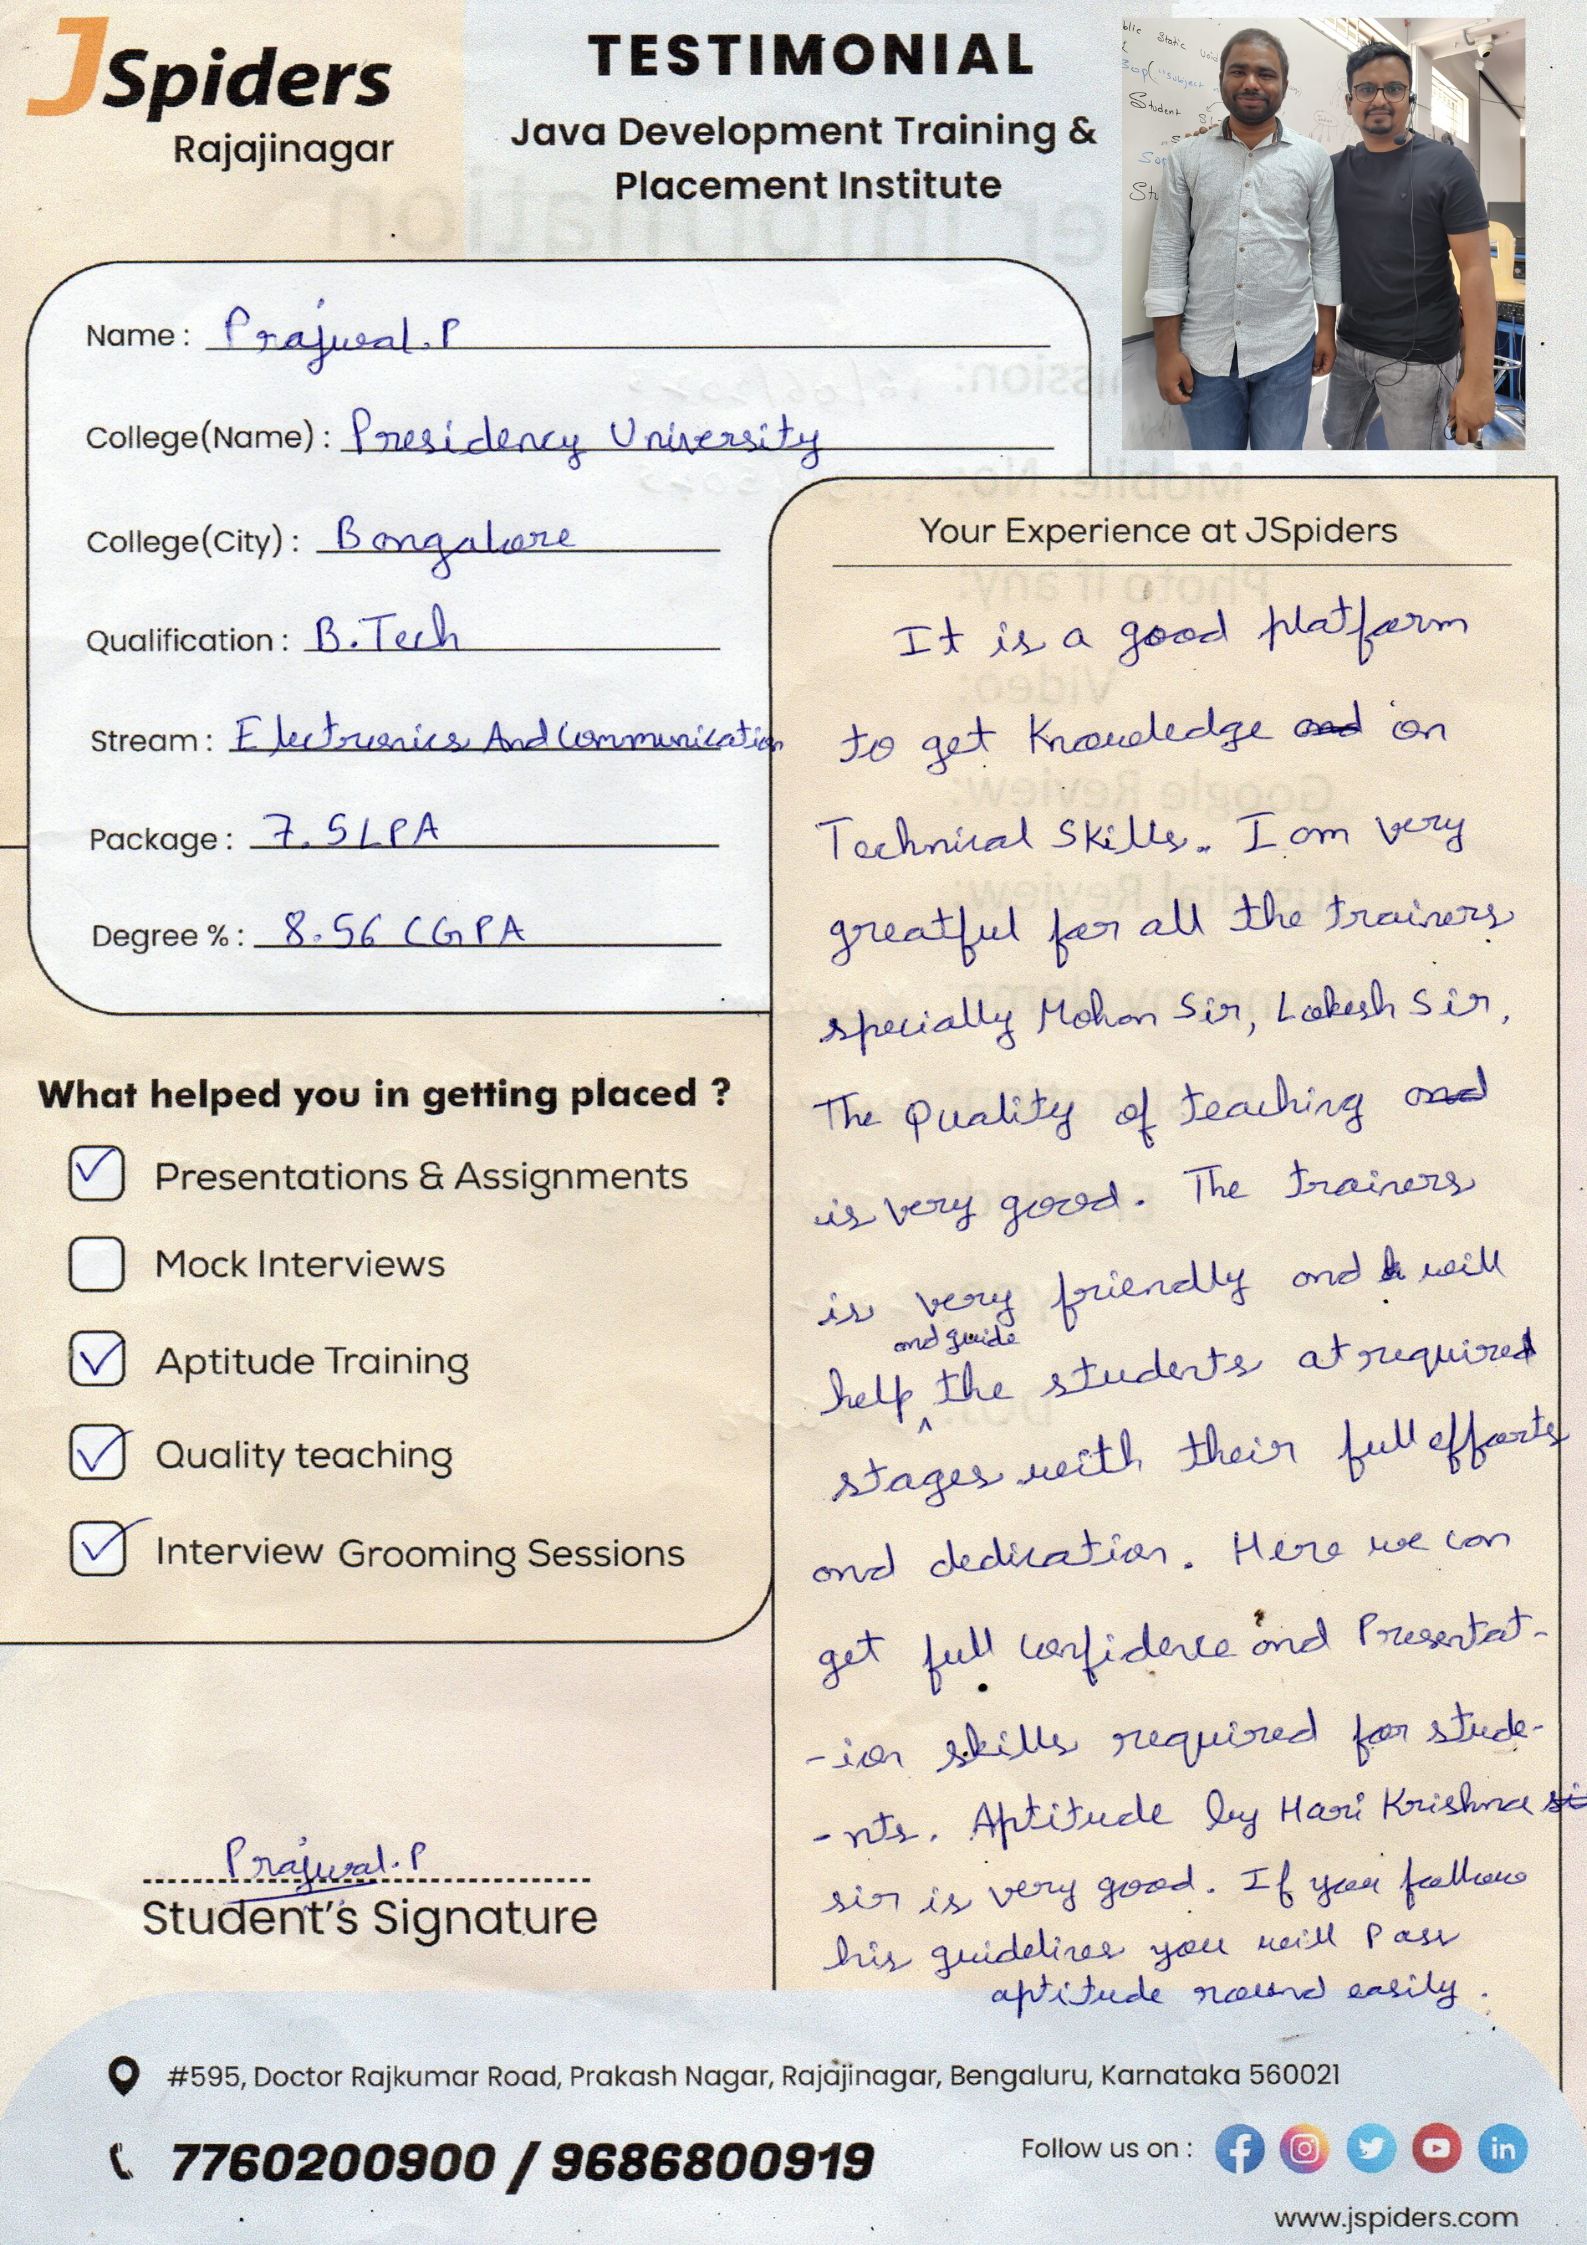 JSpiders
Rajajinagar
TESTIMONIAL
Java Development Training &
Placement Institute
Name : Prajwal.P
College(Name) : Presidency University
College(City) : Bangalore
Qualification : B.Tech
Stream : Electronics And Communication
Package : 7.5 LPA
Degree % : 8.56 CGPA
What helped you in getting placed ?
Presentations & Assignments
Mock Interviews
Aptitude Training
Quality teaching
Interview Grooming Sessions
Prajwal.P
Student's Signature
Your Experience at JSpiders
It is a good platform
to get Knowledge and on
Technical Skills. I am very
greatful for all the trainers
specially Mohan Sir, Lokesh Sir,
The Quality of teaching and
is very good. The trainers
is very friendly and will
and guide
help ^ the students at required
stages with their full efforts
and dedication. Here we can
get full confidence and Presentat-
-ion skills required for stude-
-nts. Aptitude by Hari Krishna si
sir is very good. If you follow
his guidelines you will Pass
aptitude round easily.
#595, Doctor Rajkumar Road, Prakash Nagar, Rajajinagar, Bengaluru, Karnataka 560021
7760200900 / 9686800919
Follow us on :
www.jspiders.com